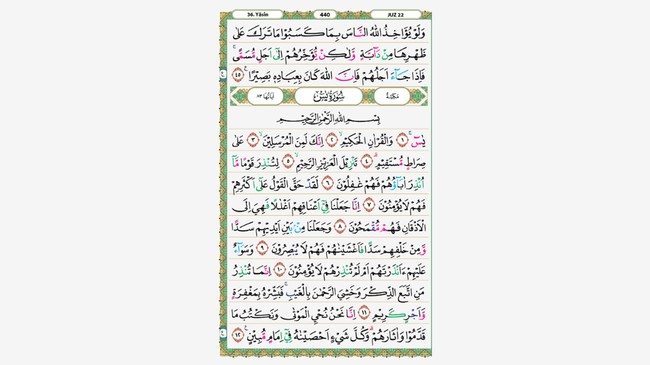 36. Yâsin 440 JUZ 22
وَلَوْ يُؤَاخِذُ اللّٰهُ النَّاسَ بِمَا كَسَبُوْا مَا تَرَكَ عَلٰى
ظَهْرِهَا مِنْ دَآبَّةٍ وَّلٰكِنْ يُّؤَخِّرُهُمْ اِلٰٓى اَجَلٍ مُّسَمًّىۚ
فَاِذَا جَاۤءَ اَجَلُهُمْ فَاِنَّ اللّٰهَ كَانَ بِعِبَادِهٖ بَصِيْرًا ۝٤٥
مَكِّيَّة سُوْرَةُ يٰسٓ اٰيَاتُهَا ٨٣
بِسْمِ اللّٰهِ الرَّحْمٰنِ الرَّحِيْمِ
يٰسٓ ۝١ وَالْقُرْاٰنِ الْحَكِيْمِۙ ۝٢ اِنَّكَ لَمِنَ الْمُرْسَلِيْنَۙ ۝٣ عَلٰى
صِرَاطٍ مُّسْتَقِيْمٍۗ ۝٤ تَنْزِيْلَ الْعَزِيْزِ الرَّحِيْمِۙ ۝٥ لِتُنْذِرَ قَوْمًا مَّآ
اُنْذِرَ اٰبَاۤؤُهُمْ فَهُمْ غٰفِلُوْنَ ۝٦ لَقَدْ حَقَّ الْقَوْلُ عَلٰٓى اَكْثَرِهِمْ
فَهُمْ لَا يُؤْمِنُوْنَ ۝٧ اِنَّا جَعَلْنَا فِيْٓ اَعْنَاقِهِمْ اَغْلٰلًا فَهِيَ اِلَى
الْاَذْقَانِ فَهُمْ مُّقْمَحُوْنَ ۝٨ وَجَعَلْنَا مِنْۢ بَيْنِ اَيْدِيْهِمْ سَدًّا
وَّمِنْ خَلْفِهِمْ سَدًّا فَاَغْشَيْنٰهُمْ فَهُمْ لَا يُبْصِرُوْنَ ۝٩ وَسَوَاۤءٌ
عَلَيْهِمْ ءَاَنْذَرْتَهُمْ اَمْ لَمْ تُنْذِرْهُمْ لَا يُؤْمِنُوْنَ ۝١٠ اِنَّمَا تُنْذِرُ
مَنِ اتَّبَعَ الذِّكْرَ وَخَشِيَ الرَّحْمٰنَ بِالْغَيْبِۚ فَبَشِّرْهُ بِمَغْفِرَةٍ
وَّاَجْرٍ كَرِيْمٍ ۝١١ اِنَّا نَحْنُ نُحْيِ الْمَوْتٰى وَنَكْتُبُ مَا
قَدَّمُوْا وَاٰثَارَهُمْۗ وَكُلَّ شَيْءٍ اَحْصَيْنٰهُ فِيْٓ اِمَامٍ مُّبِيْنٍ ۝١٢